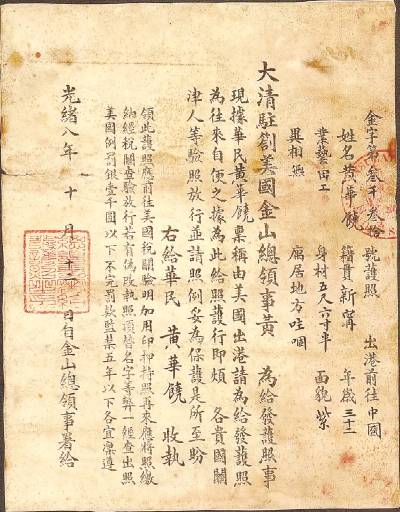 金字第叁千叁拾號護照 出港前往中國
姓名黄華饒 籍貫新甯 年歲三十二
業藝田工 身材五尺六寸半 面貌紫
異相無 寓居地方哇啯
大清駐劄美國金山總領事黃 為給發護照事
現據華民黄華饒稟稱由美國出港請為給發護照
為往來自便之據為此給照護行即煩 各貴國關
津人等驗照放行並請照例妥為保護是所至盼
右給華民 黃華饒 收執
領此護照應前往美國稅關驗明加用印押持照再來應將照繳
納經稅關查驗放行若有偽改執照頂替名字等弊一經查出照
美國例罰銀壹千圓以下不完罰款監禁五年以下各宜凜遵
光緒八年 十 月 十 日自金山總領事署給